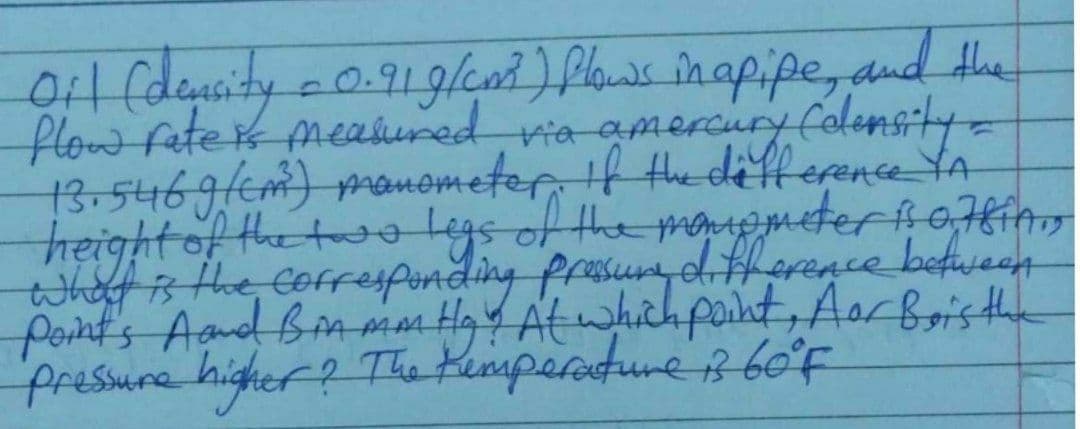 Oil (density = 0.91 g/cm³) flows in a pipe, and the
flow rate is measured via a mercury (density =
13.546 g/cm³) manometer. If the difference in
height of the two legs of the manometer is 0.78 in.,
what is the corresponding pressure difference between
points A and B in mm Hg? At which point, A or B, is the
pressure higher? The temperature is 60°F